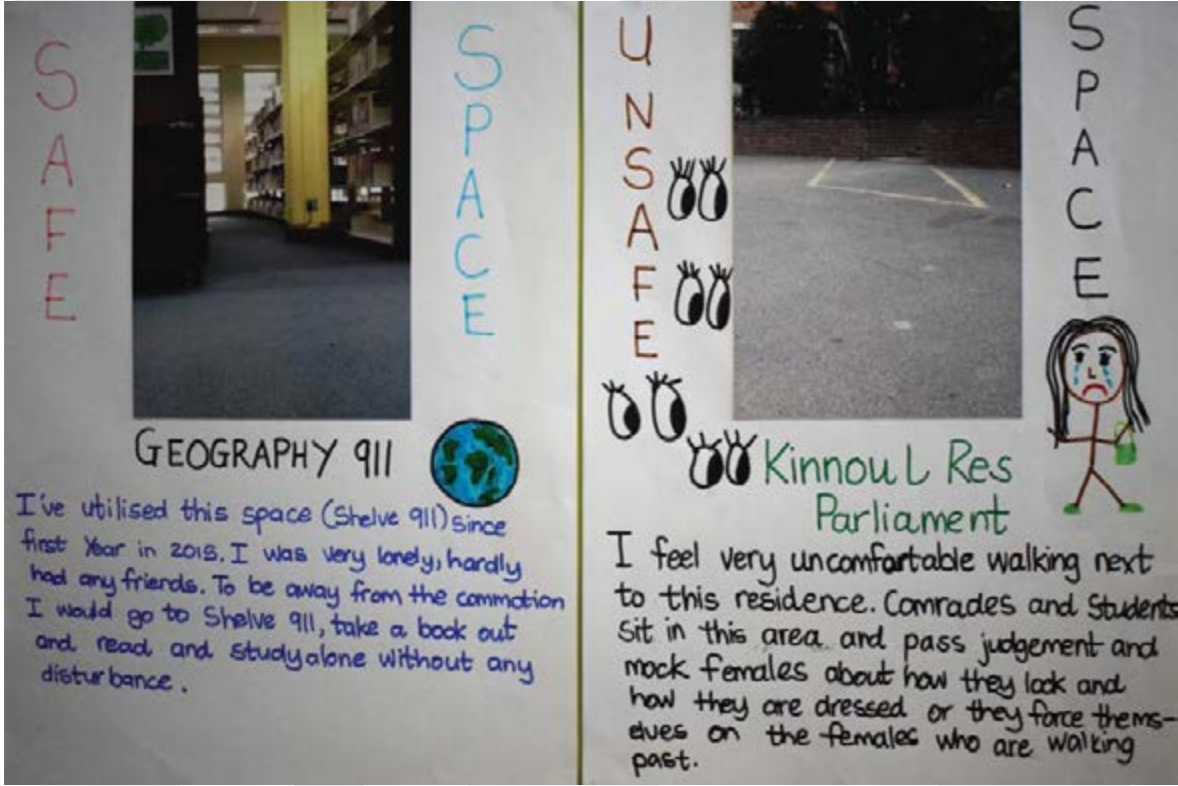 SAFE
SPACE
GEOGRAPHY 911
I've utilised this space (Shelve 911) since
first Year in 2015. I was very lonely, hardly
had any friends. To be away from the commotion
I would go to Shelve 911, take a book out
and read and study alone without any
disturbance.
UNSAFE
SPACE
Kinnoul Res
Parliament
I feel very uncomfortable walking next
to this residence. Comrades and Students
sit in this area and pass judgement and
mock females about how they look and
how they are dressed or they force thems-
elves on the females who are walking
past.